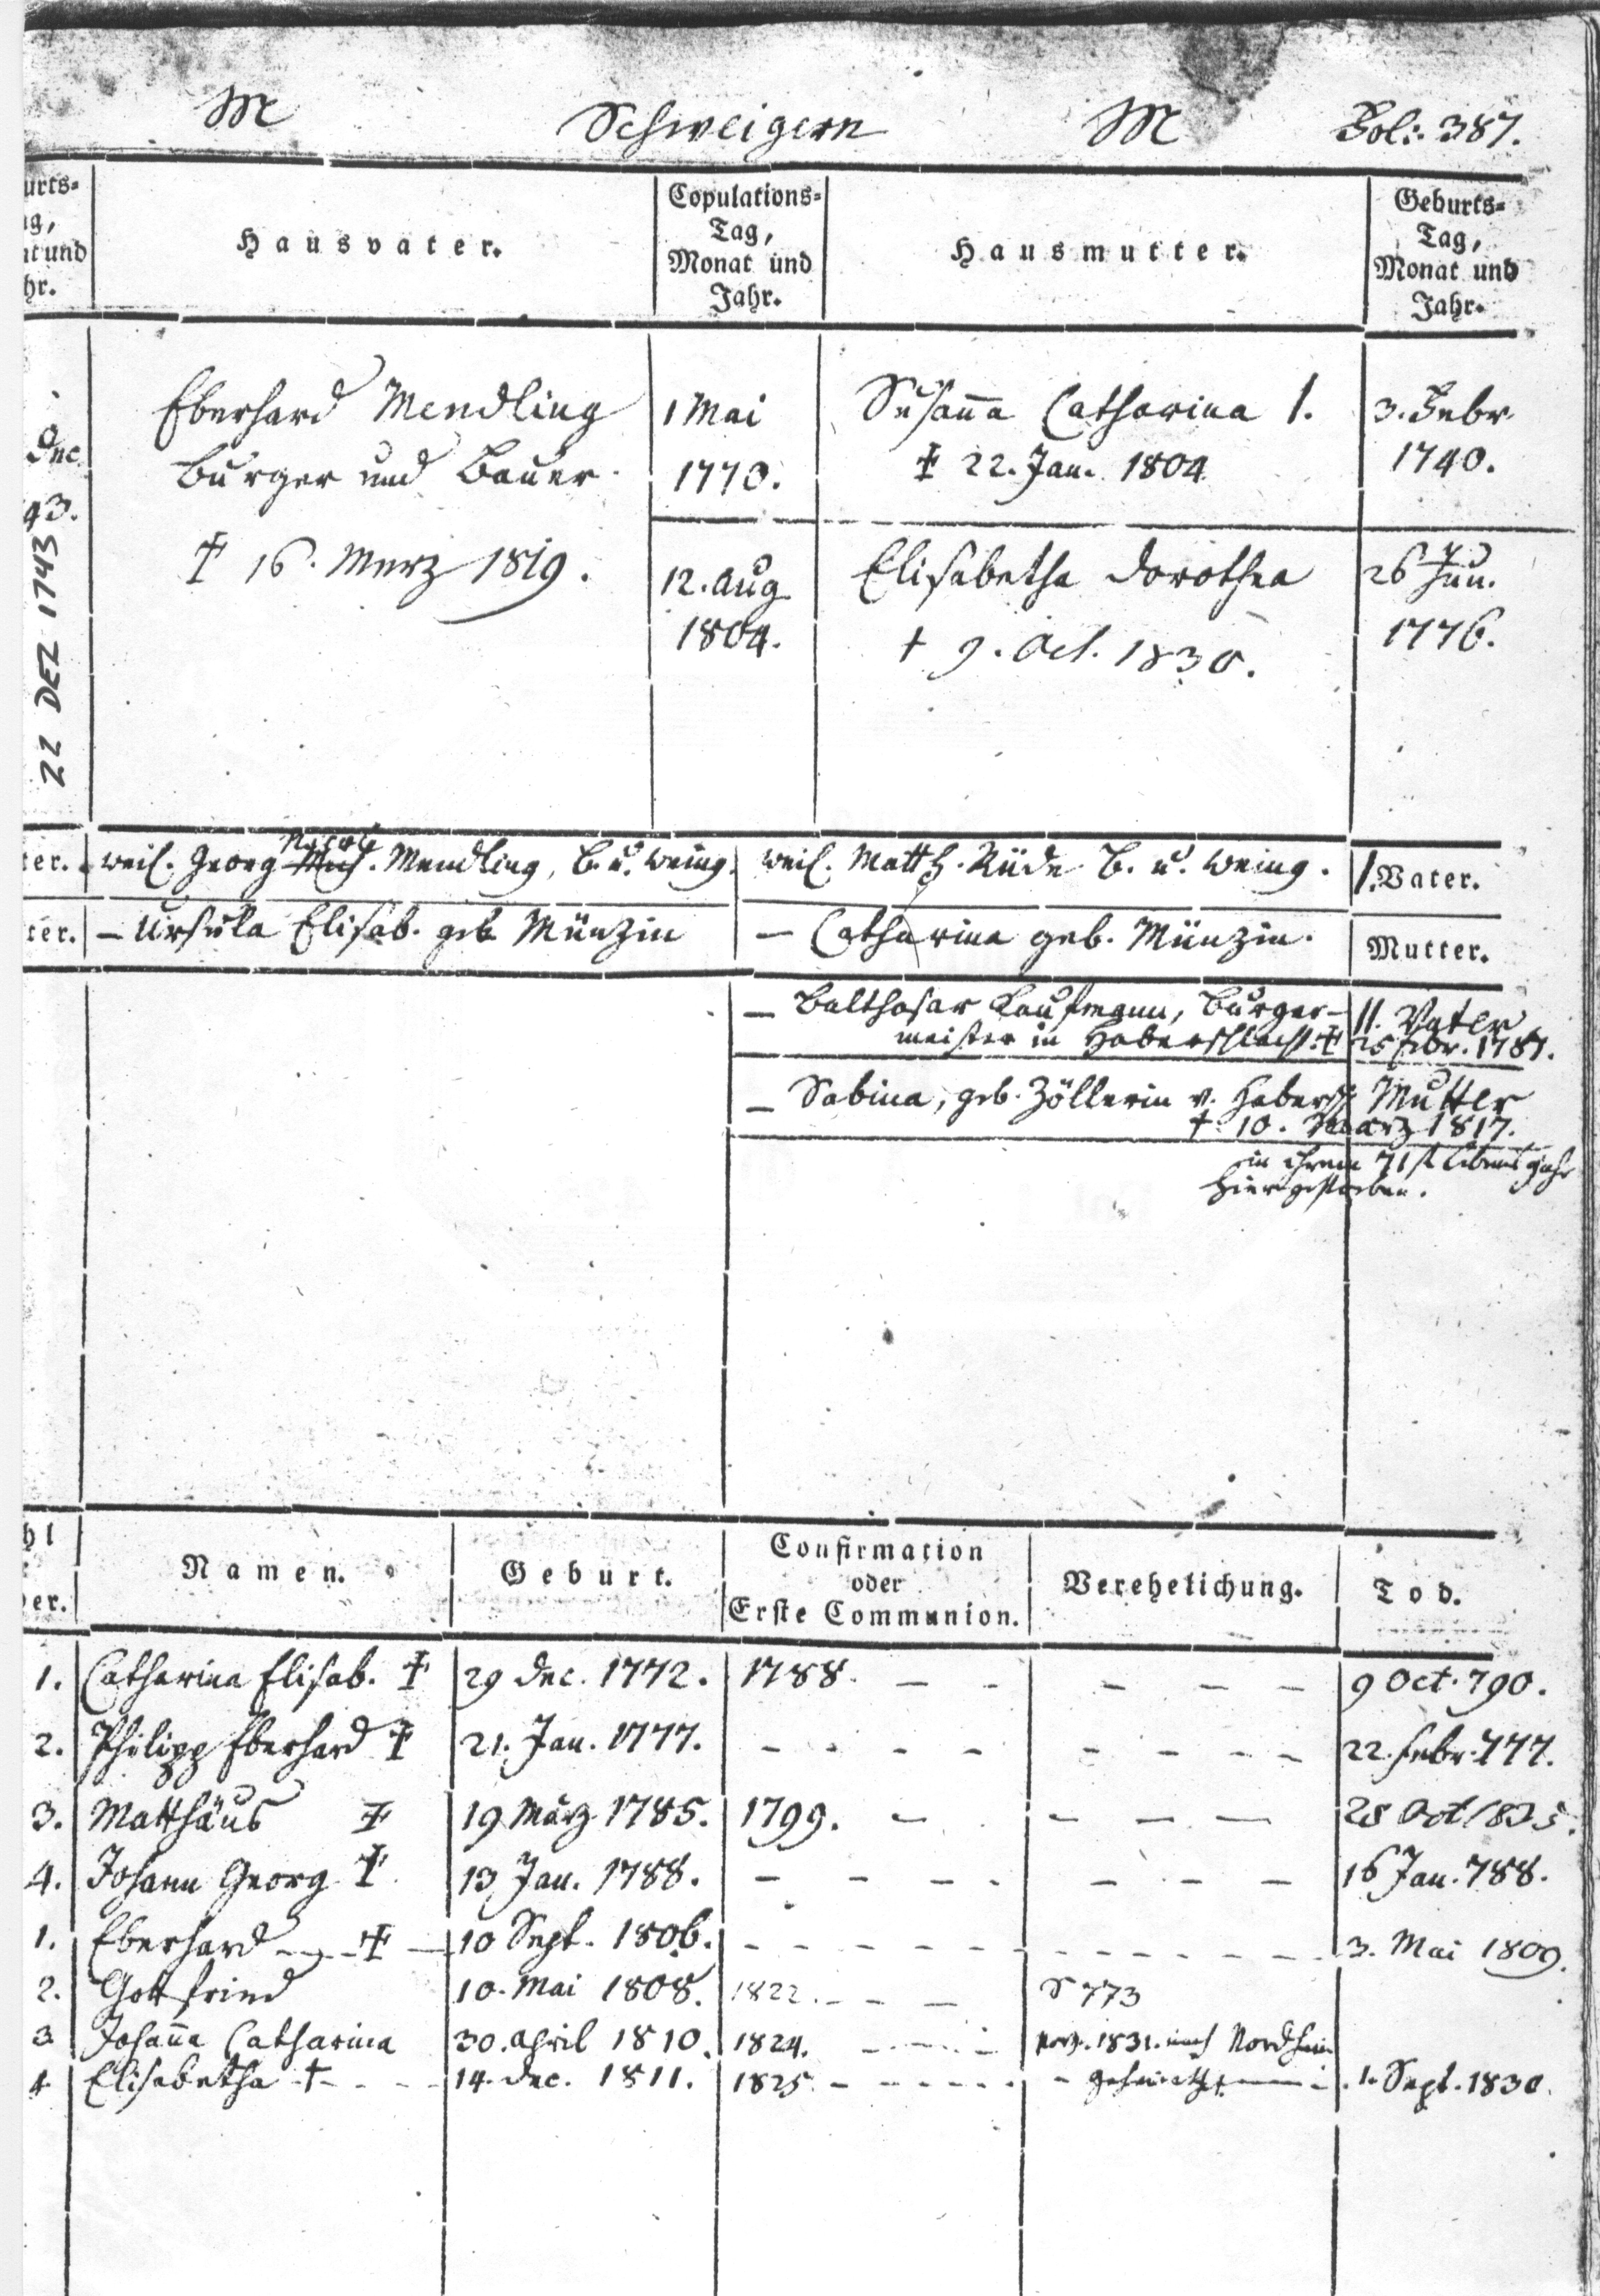 M Schweigern M Fol: 387.
urts-
ag,
at und
hr.
Hausvater.
Copulations-
Tag,
Monat und
Jahr.
Hausmutter.
Geburts-
Tag,
Monat und
Jahr.
Dec
43.
22 DEZ 1743
Eberhard Mendling
Burger und Bauer
† 16. Merz 1819.
1 Mai
1770.
Susanna Catharina 1.
† 22. Jan. 1804
3. Febr.
1740.
12. Aug
1804.
Elisabetha Dorothea
† 9. Oct. 1830.
26 Jun.
1776.
ter. weil. Georg Mendling, B. u. Weing. weil. Matth. Rüde B. u. Weing. I. Vater.
ter. – Ursula Elisab. geb. Münzin – Catharina geb. Münzin. Mutter.
– Balthasar Kaufmann, Burger- II. Vater
meister in Haberschlacht. † 25 Febr. 1787.
– Sabina, geb. Zöllerin v. Habersch. Mutter
† 10. März 1817.
in ihrem 71st. Lebens Jahr
hier gestorben.
hl
er.
Namen.
Geburt.
Confirmation
oder
Erste Communion.
Verehelichung.
Tod.
1. Catharina Elisab. † 29 Dec. 1772. 1788. – – – – – – 9 Oct. 790.
2. Philipp Eberhard † 21. Jan. 1777. – – – – – – – – 22. Febr. 777.
3. Matthäus † 19 März 1785. 1799. – – – – 28 Oct 1835.
4. Johann Georg † 13 Jan. 1788. – – – – – – – – 16 Jan. 788.
1. Eberhard † 10 Sept. 1806. – – – – – – – – 3. Mai 1809.
2. Gottfried 10. Mai 1808. 1822. – – – S 773
3 Johanna Catharina 30. April 1810. 1824. – – – 1831. nach Nordheim
4 Elisabetha † 14. Dec. 1811. 1825. – – – – geheirathet 1. Sept. 1830.